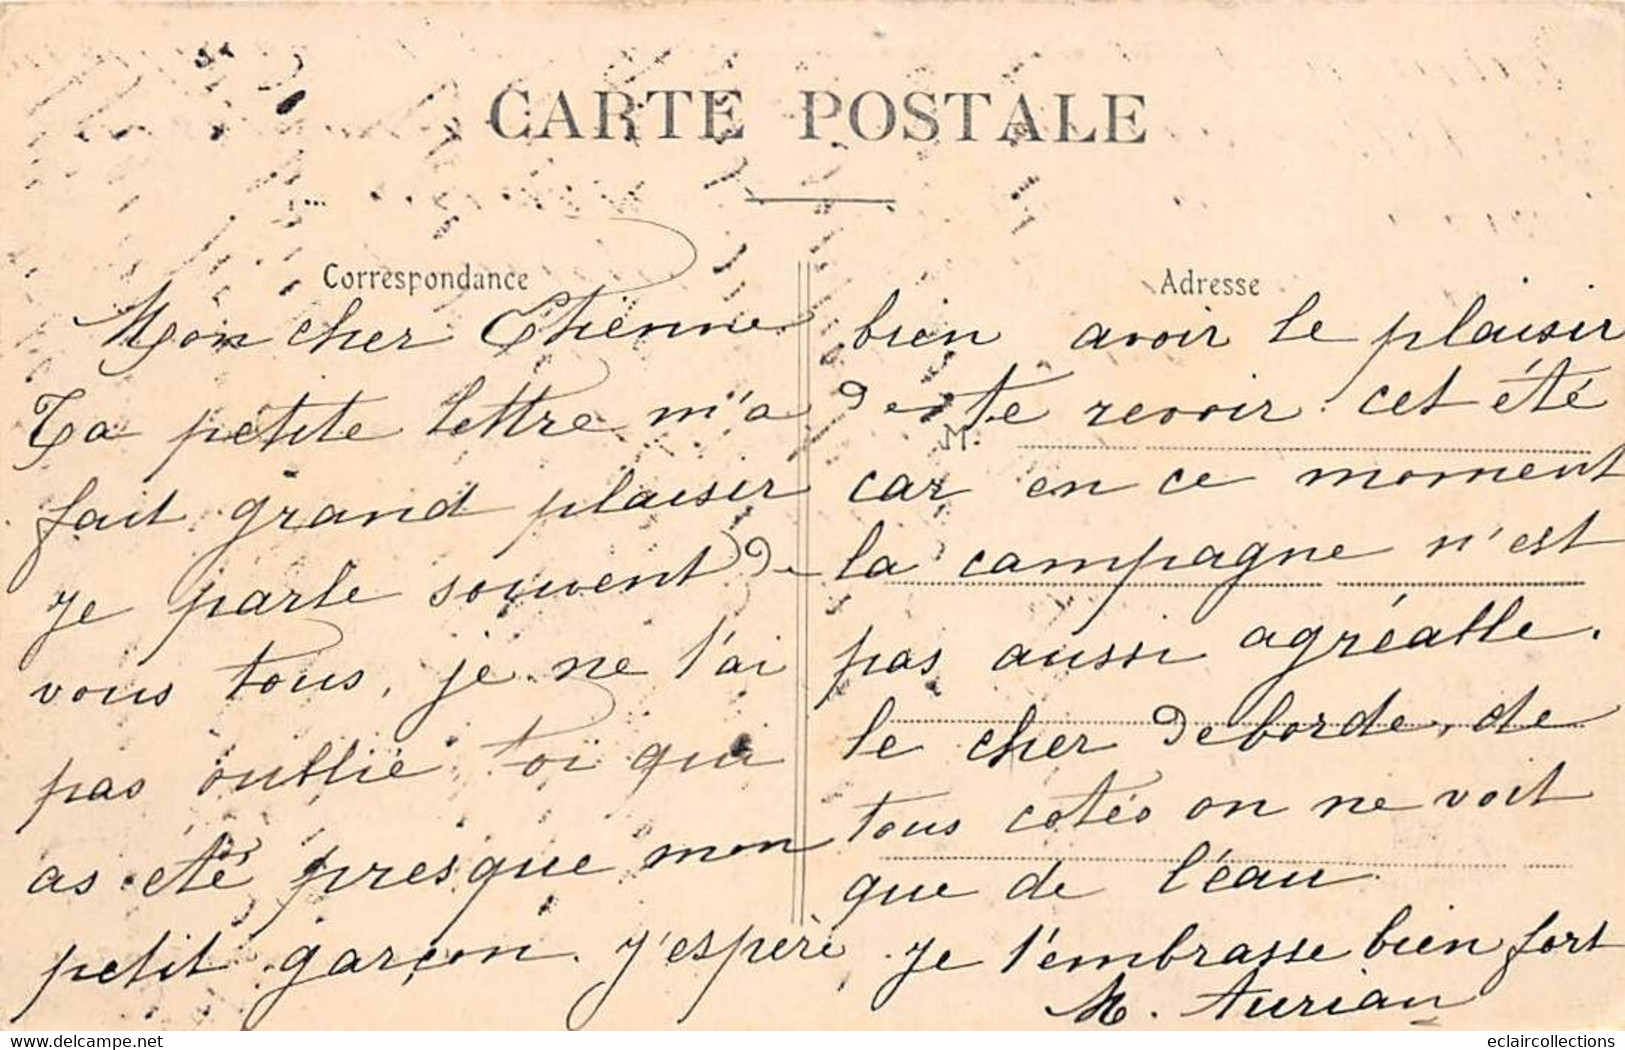 CARTE POSTALE
Correspondance
Mon cher Etienne
Ta petite lettre m'a
fait grand plaisir
je parle souvent de
vous tous, je ne t'ai
pas oublié toi qui
as été presque mon
petit garçon. J'espère
Adresse
bien avoir le plaisir
de te revoir cet été
M.
car en ce moment
la campagne n'est
pas aussi agréable.
le cher deborde, de
tous cotés on ne voit
que de l'éau
Je t'embrasse bien fort
M. Aurian
eclaircollections